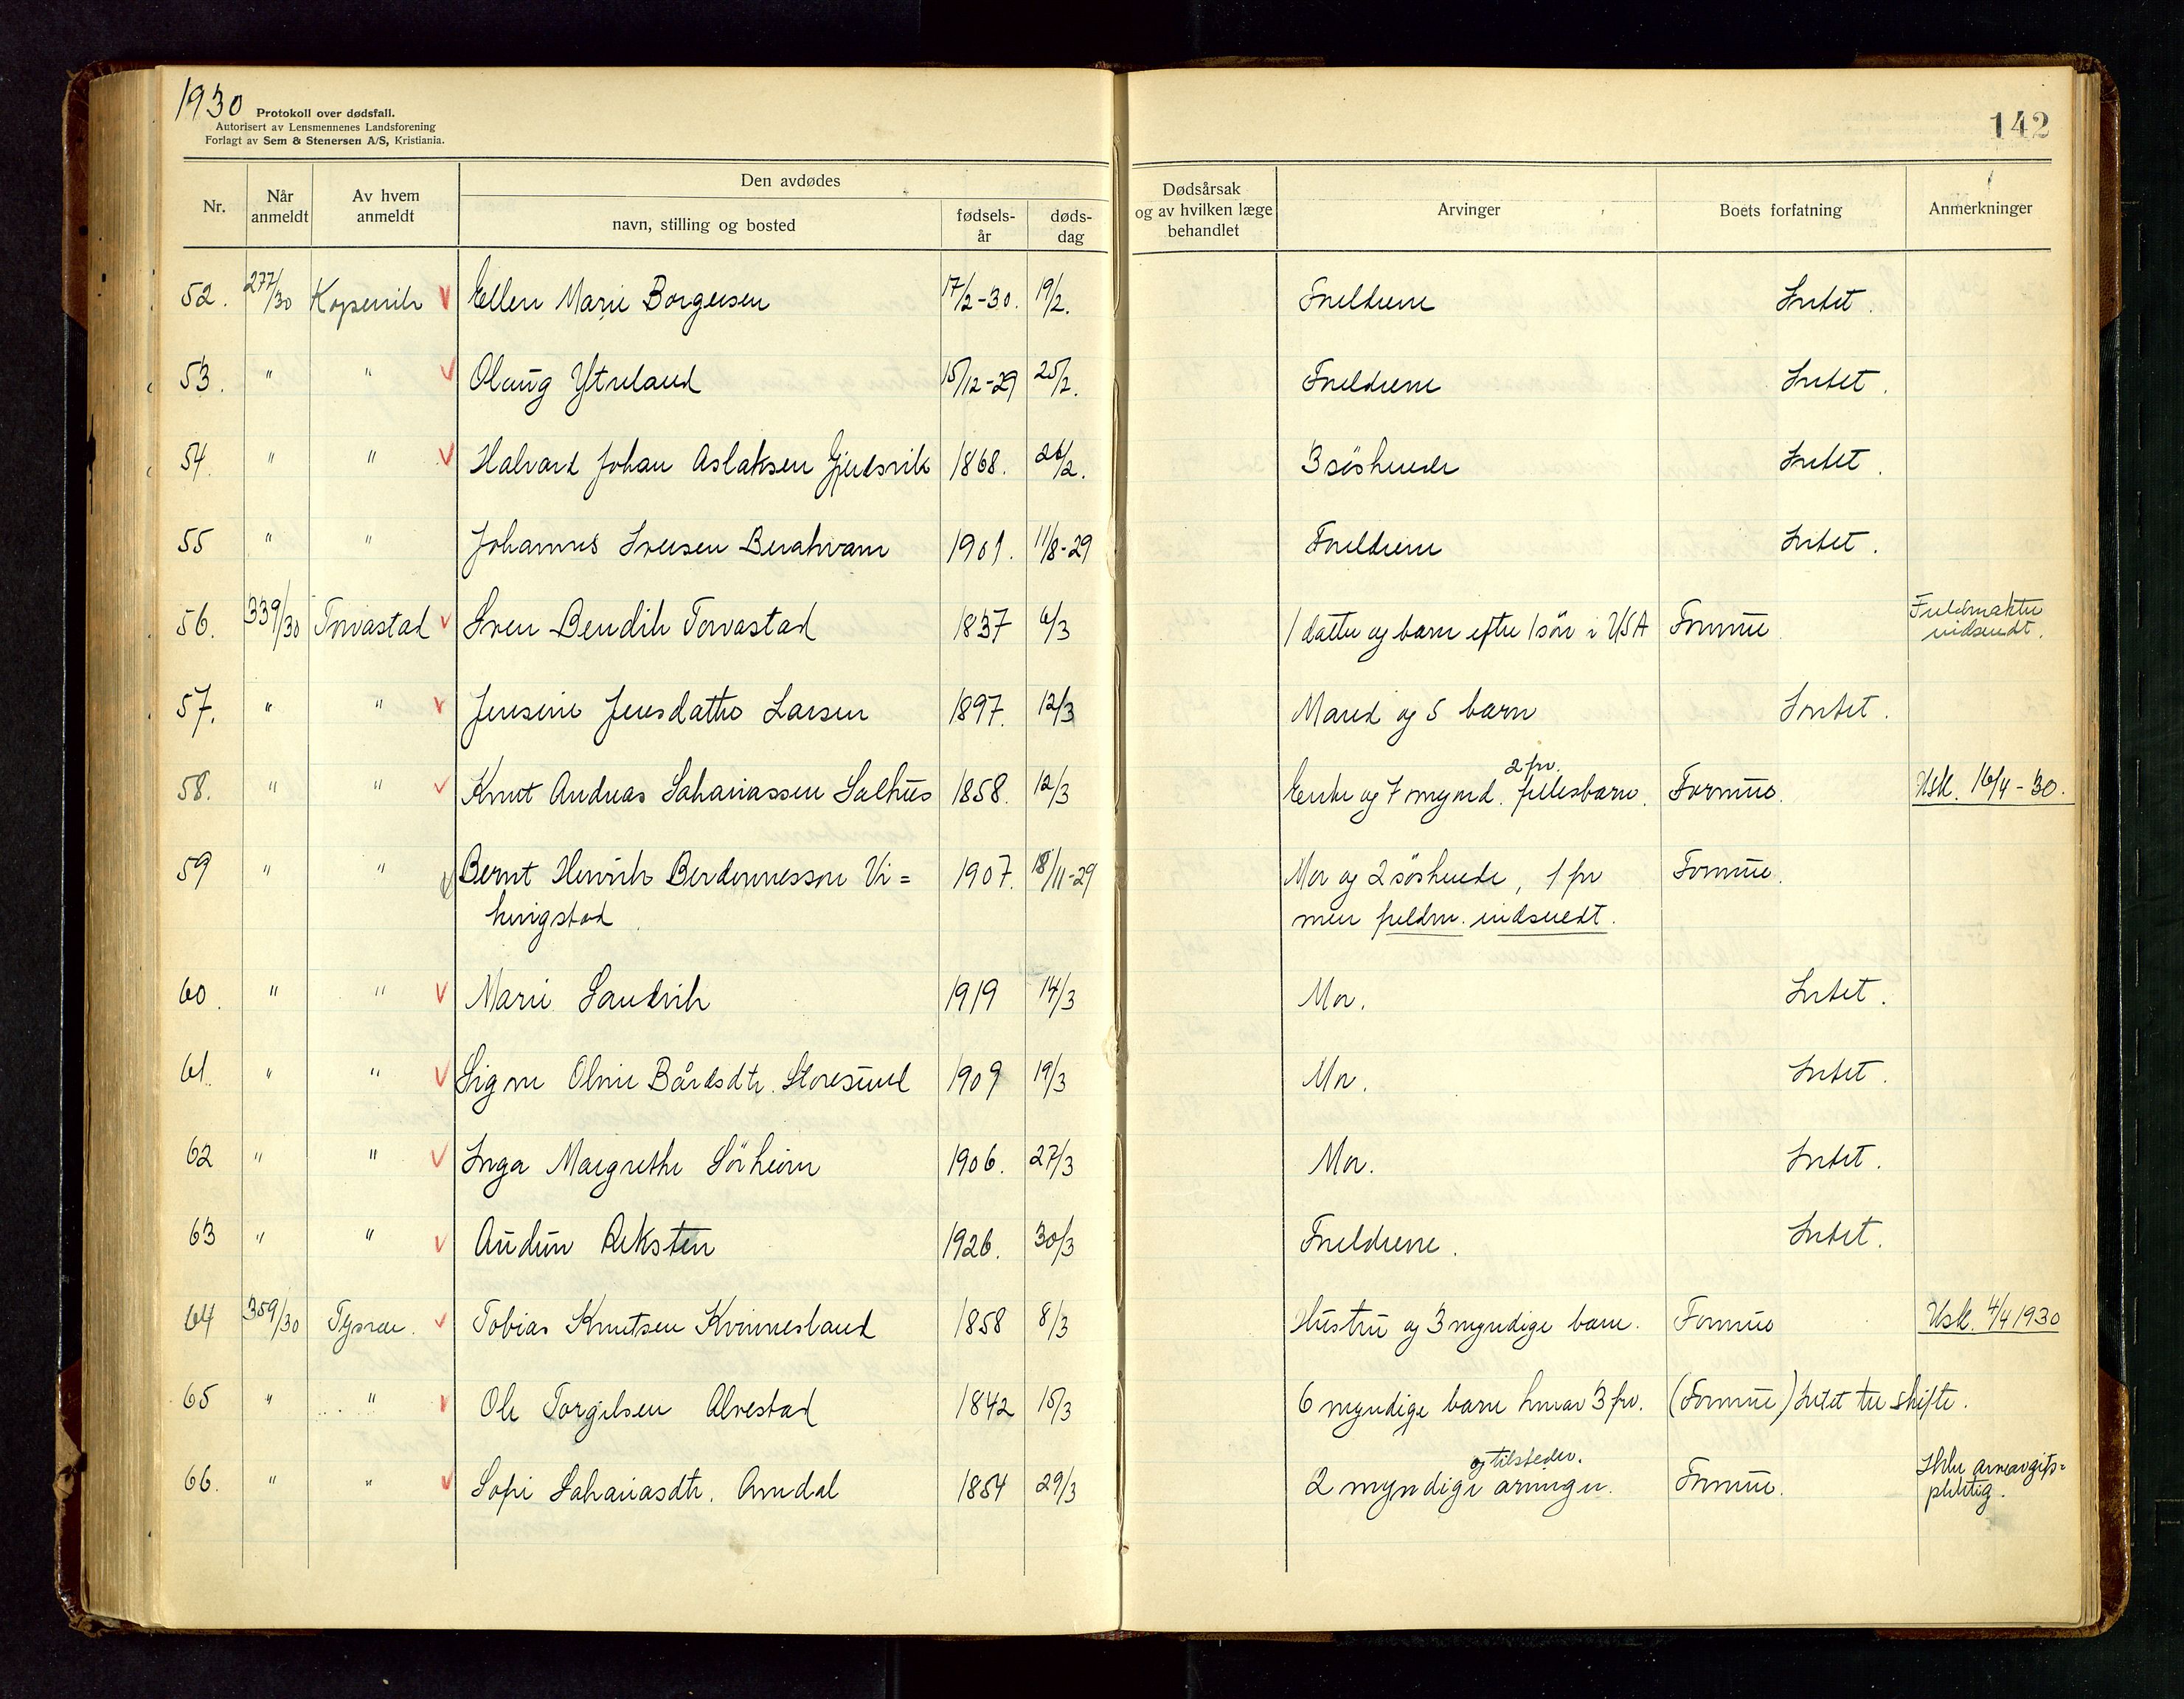 1930
Protokoll over dødsfall.
Autorisert av Lensmennenes Landsforening
Forlagt av Sem & Stenersen A/S, Kristiania.
142
Nr.
Når anmeldt
Av hvem anmeldt
Den avdødes
navn, stilling og bosted
fødsels-år
døds-dag
Dødsårsak og av hvilken læge behandlet
Arvinger
Boets forfatning
Anmerkninger
52. 277/30 Kopervik V Ellen Marie Borgersen 17/2-30. 19/2. Foreldrene Intet.
53. " " V Olaug Ytreland 15/12-29 25/2. Foreldrene Intet.
54. " " V Halvard Johan Aslaksen Gjerdsvik 1868. 26/2. 3 søskende Intet.
55 " " Johannes Iversen 1901. 11/8-29 Foreldrene Intet.
56. 339/30 Torvastad V Sven Bendik Torvastad 1837 6/3 1 datter og barn efter 1 søn i USA Formue. Fuldmakter indsendt.
57. " " V Jensine Jensdatter Larsen 1897. 12/3 Mand og 5 barn Intet.
58. " " V Knut Andreas Sakariassen Salhus 1858. 12/3 Enke og 7 mynd. 2 frv. fellesbarn. Formue. Usk. 16/4-30.
59 " " V Bernt Henrik Berdinnesson Vi= 1907. 18/11-29 Mor og 2 søskende, 1 frv Formue.
kingstad men fuldm. indsendt.
60. " " V Marie Sandvik 1919 14/3 Mor. Intet.
61. " " V Signe Oline Bårdsdtr. Storesund 1909 19/3 Mor. Intet.
62 " " V Inga Margrethe Sörheim 1906. 27/3 Mor. Intet.
63 " " V Audun Reksten 1926. 30/3 Foreldrene. Intet.
64 359/30 Tysvær. V Tobias Knutsen Kvinnesland 1858 8/3 Hustru og 3 myndige barn. Formue Usk. 4/4 1930
65 " " V Ole Torgilsen Alvestad 1842 15/3 6 myndige barn hvorav 3 frv. (Formue) Intet til skifte.
66. " " V Sofie Sakariasdtr. Amdal 1854 29/3 2 myndige og tilsteder. arvinger. Formue. Ikke arveavgifts=
pliktig.